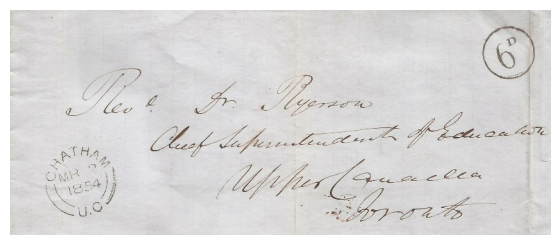 6D
Revd. Dr. Ryerson
Chief Superintendent of Education
Upper Canada
Toronto
CHATHAM
MR 2
1854
U.C